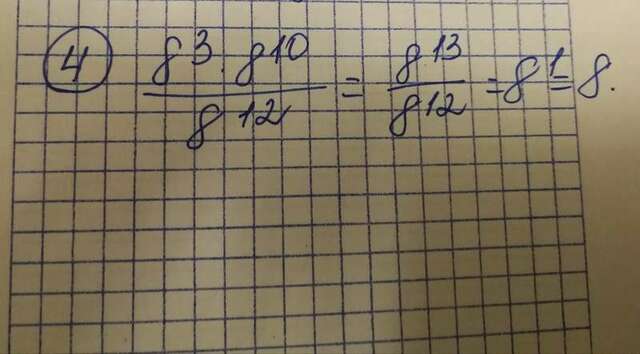 ④ $\frac{8^3 \cdot 8^{10}}{8^{12}} = \frac{8^{13}}{8^{12}} = 8^1 = 8.$